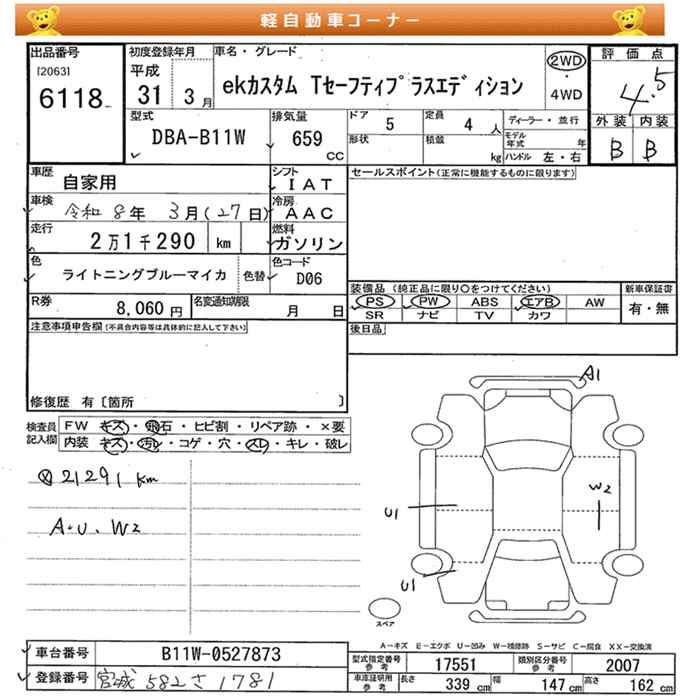 軽自動車コーナー
出品番号 [2063] 6118
初度登録年月 平成 31 3月
車名・グレード ekカスタム Tセーフティプラスエディション
2WD・4WD
評価点 4.5
外装 B 内装 B
型式 DBA-B11W
排気量 659 CC
ドア 5 定員 4人
形状 積載 kg
ディーラー・並行
モデル年式 年
ハンドル 左・右
車歴 自家用
シフト IAT
車検 令和8年 3月(27日)
冷房 AAC
走行 2万1千290 km
燃料 ガソリン
色 ライトニングブルーマイカ 色替
色コード D06
R券 8,060円
名変通知期限 月 日
セールスポイント(正常に機能するものに限ります)
装備品(純正品に限り○をつけてください)
PS PW ABS エアB AW
SR ナビ TV カワ
新車保証書 有・無
後日品
注意事項申告欄(不具合内容等は具体的に記入して下さい)
修復歴 有〔箇所 〕
検査員記入欄
FW キズ・飛石・ヒビ割・リペア跡・×要
内装 キズ・汚レ・コゲ・穴・スレ・キレ・破レ
ⓧ 21291 km
A・U、W2
A1
W2
U1
U1
スペア
A-キズ E-エクボ U-凹み W-補修跡 S-サビ C-腐食 XX-交換済
車台番号 B11W-0527873
登録番号 宮城 582 さ 1781
型式指定番号 参考 17551
類別区分番号 参考 2007
車庫証明用 参考 長さ 339 cm 幅 147 cm 高さ 162 cm